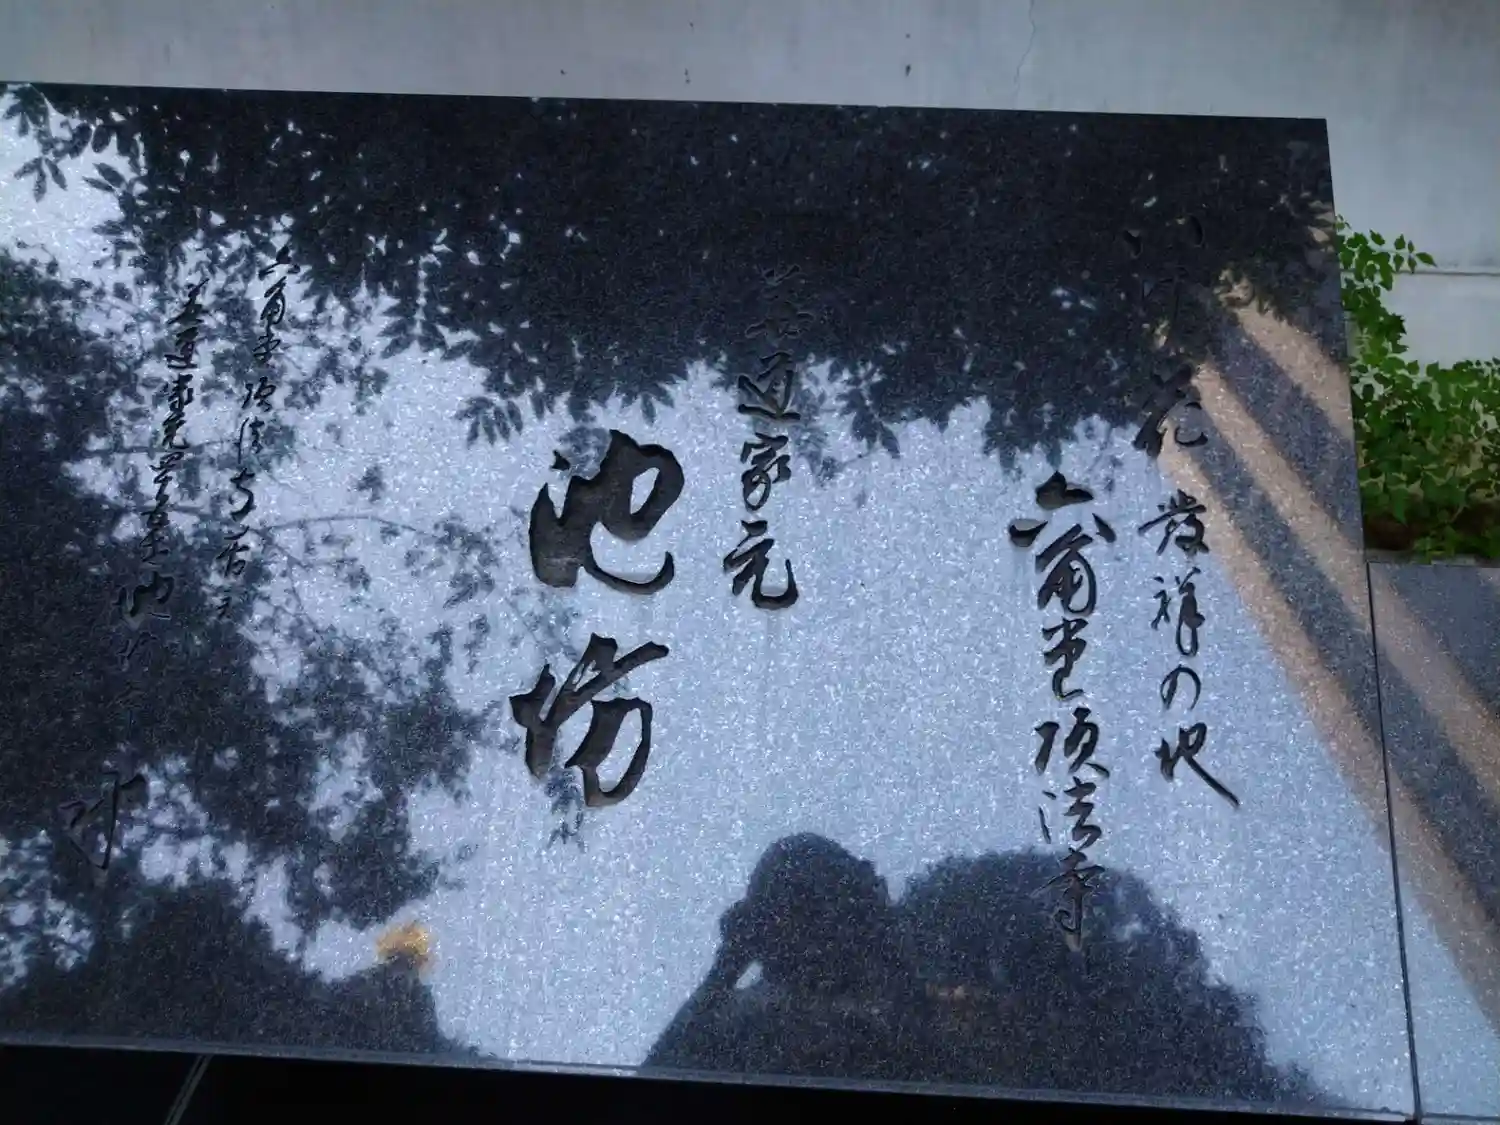 いけ花發祥の地
六角堂頂法寺
華道家元
池坊
六角堂頂法寺住職
華道家元四十五世池坊専永